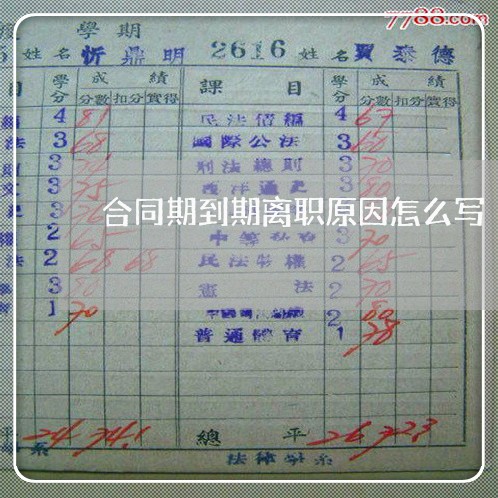 7788.com
學期
姓名 忻鼎明 2616 姓名 賈泰德
目 學分 成績 課目 學分 成績
分數 扣分 實得 分數 扣分 實得
4 81 民法債編 4 67
法 3 68 國際公法 3 60
3 刑法總則 3 70
3 75 西洋通史 3 80
合同期到期离职原因怎么写
2 65 3 70
法 2 68 68 民法物權 2 65
3 80 憲法 2 70
1 70 2 80
普通體育 1 78
平 24 74.1 總平 26 72.3
系 法律學系